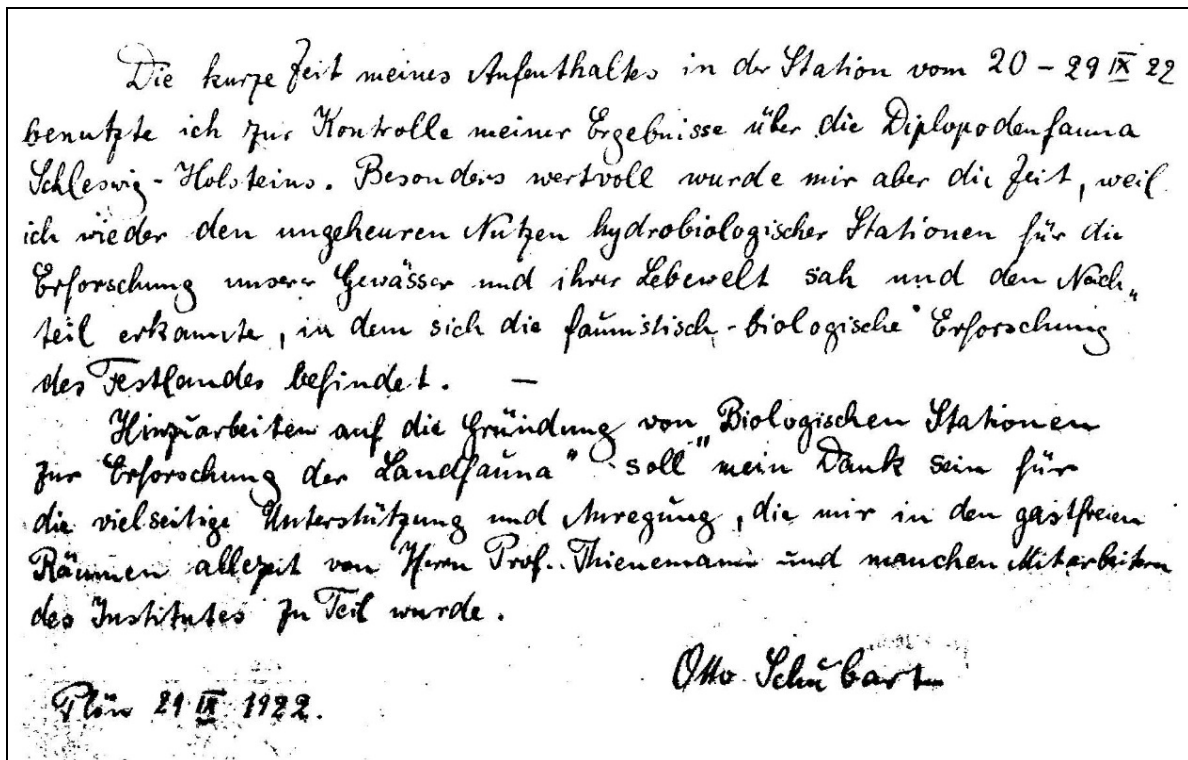 Die kurze Zeit meines Aufenthaltes in der Station vom 20 – 29 IX 22
benutzte ich zur Kontrolle meiner Ergebnisse über die Diplopodenfauna
Schleswig-Holsteins. Besonders wertvoll wurde mir aber die Zeit, weil
ich wieder den ungeheuren Nutzen hydrobiologischer Stationen für die
Erforschung unserer Gewässer und ihrer Lebewelt sah und den Nach-
teil erkannte, in dem sich die faunistisch-biologische Erforschung
des Festlandes befindet. —
Hinzuarbeiten auf die Gründung von „Biologischen Stationen
zur Erforschung der Landfauna" soll mein Dank sein für
die vielseitige Unterstützung und Anregung, die mir in den gastfreien
Räumen allezeit von Herrn Prof. Thienemann und manchen Mitarbeitern
des Institutes zu Teil wurde.
Otto Schubart
Plön 29 IX 1922.